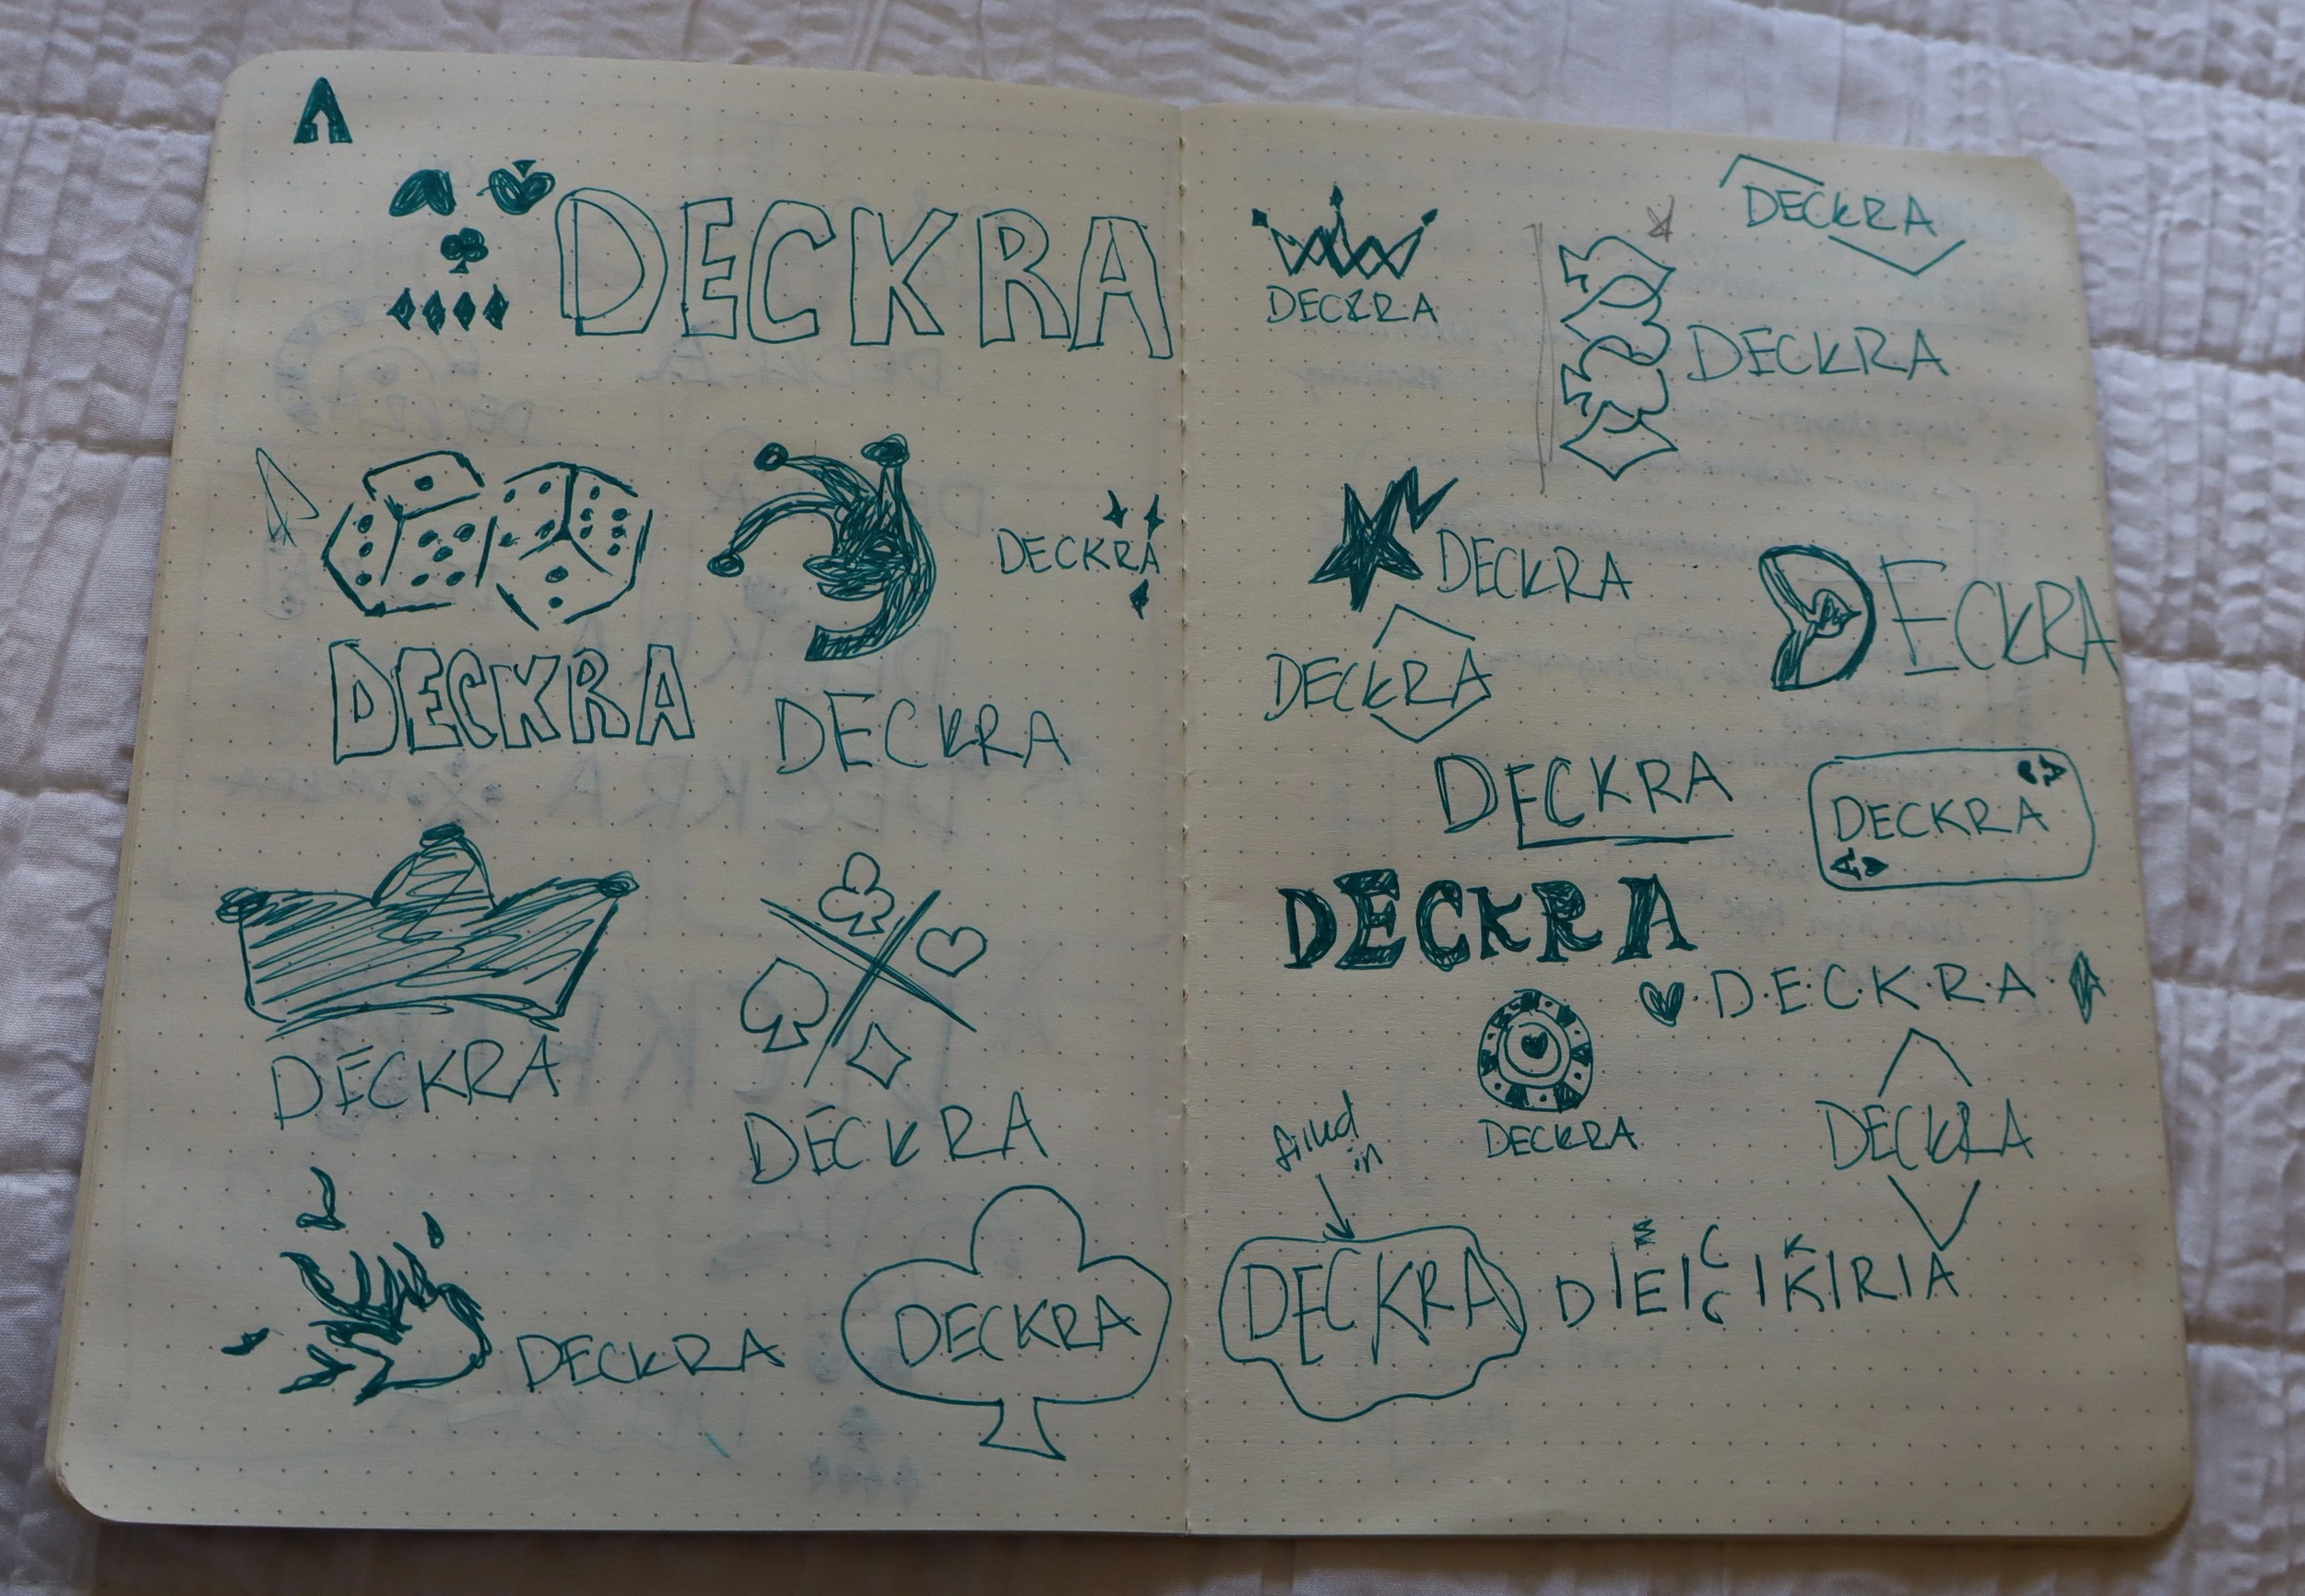 A
DECKRA
A
DECKRA
DECKRA
DECKRA
DECKRA
DECKRA
DECKRA
DECKRA
DECKRA
DECKRA
DECKRA
DECKRA
DECKRA
DECKRA
DECKRA
A
DECKRA
A
DECKRA
D.E.C.K.R.A.
DECKRA
DECKRA
filled
in
DECKRA
D|E|C|K|R|A